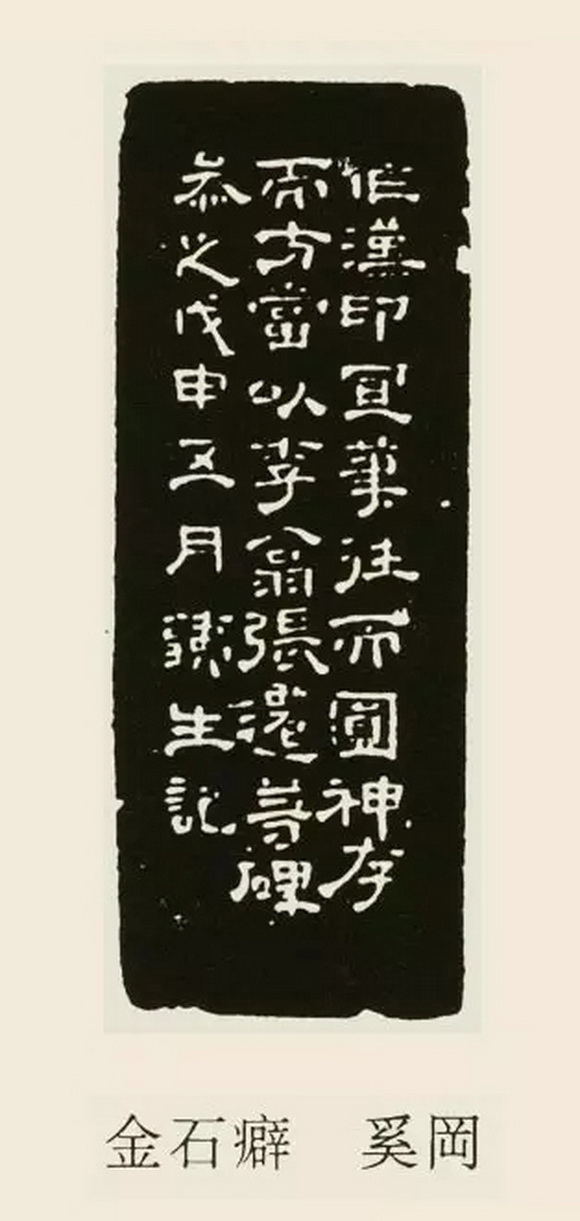 作漢印宜筆往而圓神存
而方當以李翁張遷等碑
叅之戊申五月鐵生記
金石癖　奚岡